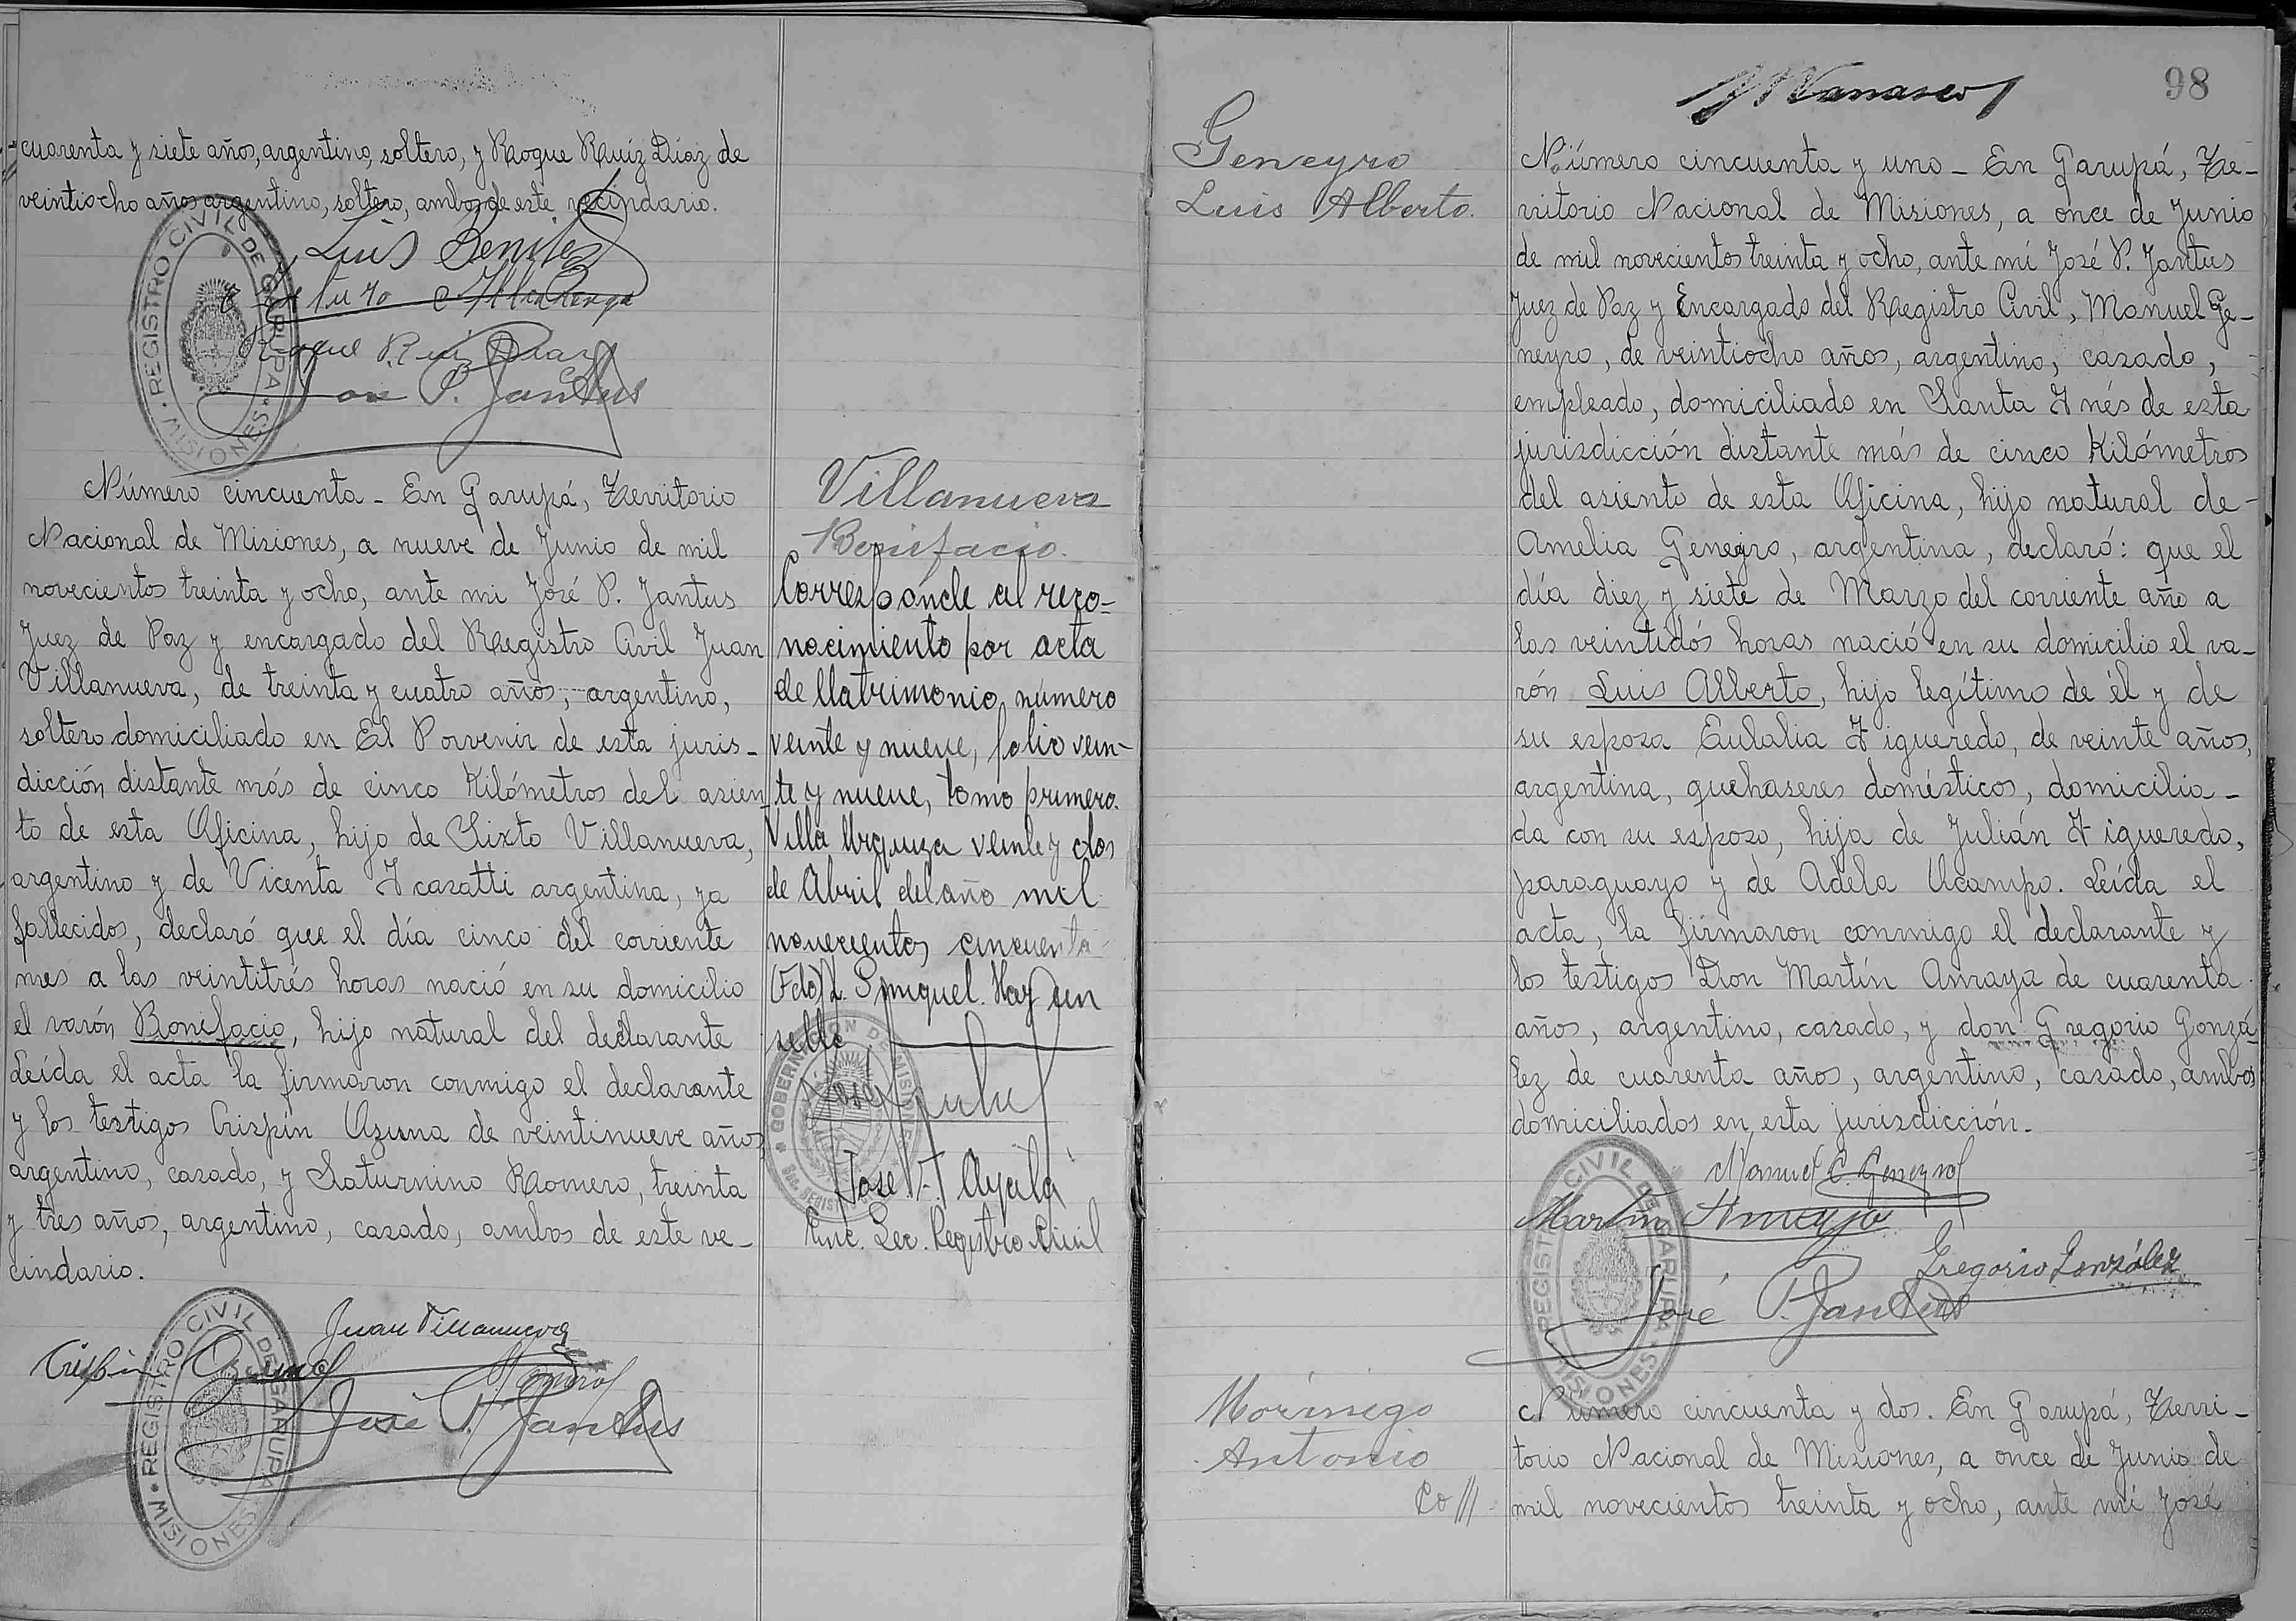 cuarenta y siete años, argentino, soltero, y Roque Ruíz Díaz de
veintiocho años argentino, soltero, ambos de este vecindario.
Luis Benitez
Roque Ruiz Diaz
José P. Jantus
REGISTRO CIVIL DE GARUPA
MISIONES
Número cincuenta - En Garupá, Territorio
Nacional de Misiones, a nueve de Junio de mil
novecientos treinta y ocho, ante mi José P. Jantus
Juez de Paz y encargado del Registro Civil Juan
Villanueva, de treinta y cuatro años, argentino,
soltero domiciliado en El Porvenir de esta juris-
dicción distante más de cinco Kilómetros del asien-
to de esta Oficina, hijo de Sixto Villanueva,
argentino y de Vicenta Icasatti argentina, ya
fallecidos, declaró que el día cinco del corriente
mes a las veintitrés horas nació en su domicilio
el varón Bonifacio, hijo natural del declarante
Leída el acta la firmaron conmigo el declarante
y los testigos Crispín Ozuna de veintinueve años
argentino, casado, y Saturnino Romero, treinta
y tres años, argentino, casado, ambos de este ve-
cindario.
Juan Villanueva
Crispin Ozuna
S Romero
José P. Jantus
REGISTRO CIVIL DE GARUPA
MISIONES
Villanueva
Bonifacio.
Corresponde al reco-
nocimiento por acta
de Matrimonio número
veinte y nueve, folio vein-
te y nueve, tomo primero.
Villa Urquiza veinte y dos
de Abril del año mil
novecientos cincuenta
(Fdo) L. Hay un
sello
José F. Ayala
Enc. Sec. Registro Civil
98
Geneyro
Luis Alberto.
Número cincuenta y uno - En Garupá, Te-
rritorio Nacional de Misiones, a once de Junio
de mil novecientos treinta y ocho, ante mí José P. Jantus
Juez de Paz y Encargado del Registro Civil, Manuel Ge-
neyro, de veintiocho años, argentino, casado,
empleado, domiciliado en Santa Inés de esta
jurisdicción distante más de cinco Kilómetros
del asiento de esta Oficina, hijo natural de
Amelia Geneyro, argentina, declaró: que el
día diez y siete de Marzo del corriente año a
las veintidós horas nació en su domicilio el va-
rón Luis Alberto, hijo legítimo de él y de
su esposa Eulalia Figueredo, de veinte años,
argentina, quehaseres domésticos, domicilia-
da con su esposo, hija de Julián Figueredo,
paraguayo y de Adela Ocampo. Leída el
acta, la firmaron conmigo el declarante y
los testigos Don Martín Amaya de cuarenta
años, argentino, casado, y don Gregorio Gonzá
lez de cuarenta años, argentino, casado, ambos
domiciliados en esta jurisdicción.
Manuel C. Geneyro
Martín Amaya
Gregorio González
José P. Jantus
REGISTRO CIVIL DE GARUPA
MISIONES
Morinigo
Antonio
Número cincuenta y dos. En Garupá, Terri-
torio Nacional de Misiones, a once de Junio de
mil novecientos treinta y ocho, ante mí José